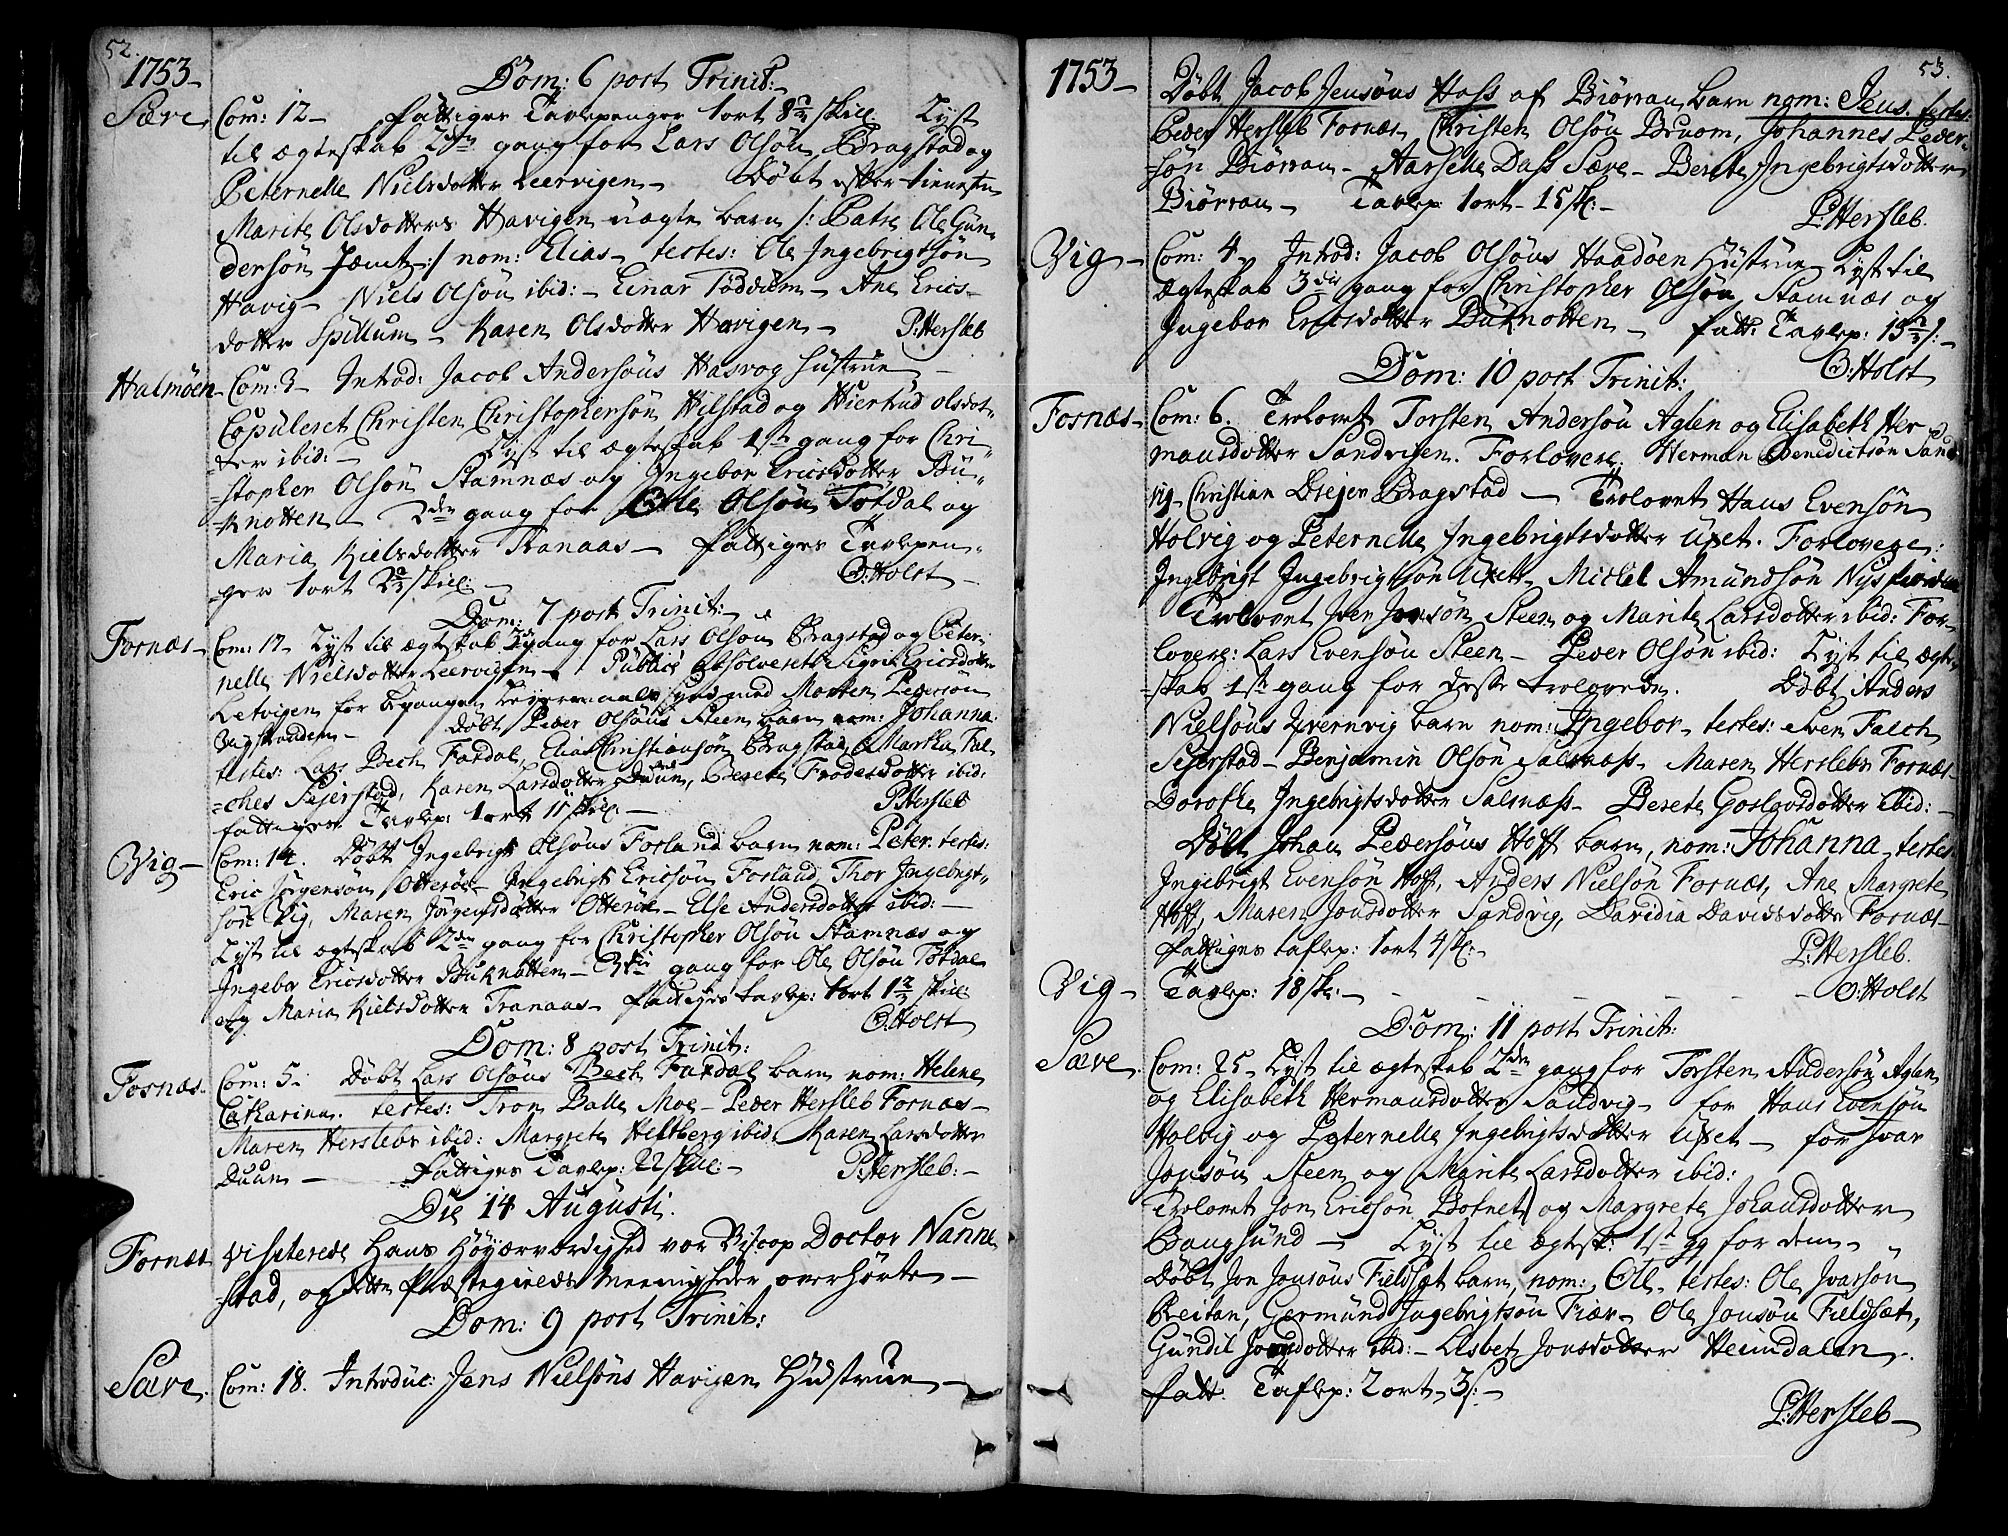 52.
1753-
Dom: 6 post Trinit:-
Sævre, Com: 12- fattiges Tavlepenger 1ort 8½ skill: Lyst
til ægteskab 2den gang for Lars Olsøn Bragstad og
Peternelle Nielsdotter Leervigen- Døbt efter tienesten
Marite Olsdotters Havigen uægte barn /: Patre Ole Gün-
dersøn Jæmt:/ nom: Elias- testes: Ole Ingebrigtsøn
Havig- Niels Olsøn ibid:- Einar Föddüm- Ane Erics-
dotter Spillum- Karen Olsdotter Havigen- P:Hersleb
Halmöen- Com: 3- Introd: Jacob Andersøns Hasvog hüstrue-
Copuleret Christen Christophersøn Hilstad og Hiertrüd olsdot-
=ter ibid:- Lyst til ægteskab 1ste gang for Chri-
=stopher Olsøn Stamnæs og Ingebor Ericsdotter Bü-
=knotten- 2den gang for Ole Olsøn Totdal og
Maria Kielsdotter Tranaas- fattiges Tavlepen-
=ger 1ort 2½ skill:- O:Holst-
Dom: 7 post Trinit:
Fornæs- Com: 17- Lyst til ægteskab 3die gang for Lars Olsøn Bragstad og Peter-
nelle Nielsdotter Leervigen- Publicé absolveret Sigrii Ericsdotter
Letvigen for begangen Leyermaal med Morten Pedersøn
Døbt Peder Olsøns Steen barn nom: Johanna.
testes: Lars Bech Fardal, Elias Christiansøn Bragstad, Martha Fal-
=ches Sejerstad, Karen Larsdotter Duun, Berete Frodesdotter ibid:
fattiges Tavlep: 1ort 11 skill:- P:Hersleb
Vig- Com: 14. Døbt Ingebrigt Olsøns Forland barn nom: Peter. testes:
Eric Jörgensøn Otterøe- Ingebrigt Ericsøn Forland, Thor Ingebrigt-
søn Vig, Maren Jörgensdotter Otterøe- Else Andersdotter ibid:-
Lyst til ægteskab 2den gang for Christopher Olsøn Stamnæs og
Ingebor Ericsdotter Büknotten- 3die gang for Ole Olsøn Totdal
og Maria Kielsdotter Tranaas- fattiges tavlep: 1ort 1½ skill:
O:Holst
Dom: 8 post Trinit:
Fornæs- Com: 5- Døbt Lars Olsøns Bech Fardal barn nom: Helene
Catharina. testes: Tron Balle Moe- Peder Hersleb Fornæs-
Maren Herslebs ibid: Margrete Heltberg ibid: Karen Larsdotter
Duun- fattiges Tavlep: 22 skill:- P:Hersleb:-
Die 14 Augusti.
Fornæs visiterede Hans Höyærværdighed vor Biscop Doctor Nanne-
=stad, og dette Præstegields Meenigheder overhörte-
Dom: 9 post Trinit:
Sævre. Com: 18. Introduc: Jens Nielsøns Havigen Hüstrue-
53.
1753-
Døbt Jacob Jensøns Hass af Biörran barn nom: Jens. testes:
Peder Hersleb Fornæs, Christen Olsøn Bruom, Johannes Peder-
=søn Biörran- Aarsete Dass Sævre- Berete Ingebrigtsdotter
Biörran- Tavlep 1ort- 15 sk:-
P:Hersleb.
Vig- Com: 4- Introd: Jacob Olsøns Haadöen Hüstrue Lyst til
ægteskab 3die gang for Christopher Olsøn Stamnæs og
Ingebor Ericsdotter Büknotten- fatt: Tavlep: 13½ s:-
O:Holst
Dom: 10 post Trinit:
Fornæs- Com: 6. Trolovet Torsten Andersøn Aglen og Elisabeth Her-
mansdotter Sandvigen. Forlovere. Herman Benedictsøn Sand-
vig- Christian Drejer Bragstad- Trolovet Hans Evensøn
Holvig og Peternelle Ingebrigtsdotter Uxet. Forlovere:
Ingebrigt Ingebrigtsøn Uxet- Michel Amundsøn
Trolovet Iver Jonsøn Steen og Marite Larsdotter ibid: For-
lovere: Lars Evensøn Steen- Peder Olsøn ibid: Lyst til ægte-
=skab 1ste gang for desse trolovede. Døbt Anders
Nielsøns Qvernvig barn nom: Ingebor- testes: Even Falch
Sejerstad- Benjamin Olsøn Salsnæss- Maren Herslebs Fornæs-
Dorothe Ingebrigtsdotter Salsnæss- Berete Goslovsdotter ibid:-
Døbt Johan Pedersøns Hoff barn, nom: Johanna- testes:
Ingebrigt Evensøn Hoff, Anders Nielsøn Fornæs, Ane Margrete
Hoff, Maren Jonsdotter Sandvig, Davidia Davidsdotter Fornæs-
fattiges taflep: 1ort 4 sk:- P:Hersleb.
Vig- Tavlep: 18 sk:- - - - - O:Holst
Dom: 11 post Trinit:
Sævre. Com: 25- Lyst til ægteskab 2den gang for Torsten Andersøn Aglen
og Elisabeth Hermansdotter Sandvig- for Hans Evensøn
Holvig og Peternelle Ingebrigtsdotter Uxet- for Ivar
Jonsøn Steen og Marite Larsdotter ibid:
Trolovet Jon Ericsøn Botnet og Margrete Johansdotter
Bangsünd- Lyst til ægtesk: 1ste gg for dem-
Døbt Jon Jonsøns Fieldsæt barn, nom: Ole- testes: Ole Ivarsøn
Breitan, Germünd Ingebrigtsøn Fiær- Ole Jonsøn Fieldsæt,
Gündil Jonsdotter ibid:- Lisbet Jonsdotter Heimdalen-
fatt. Taflep: 2 ort- 3 s:-
P:Hersleb-